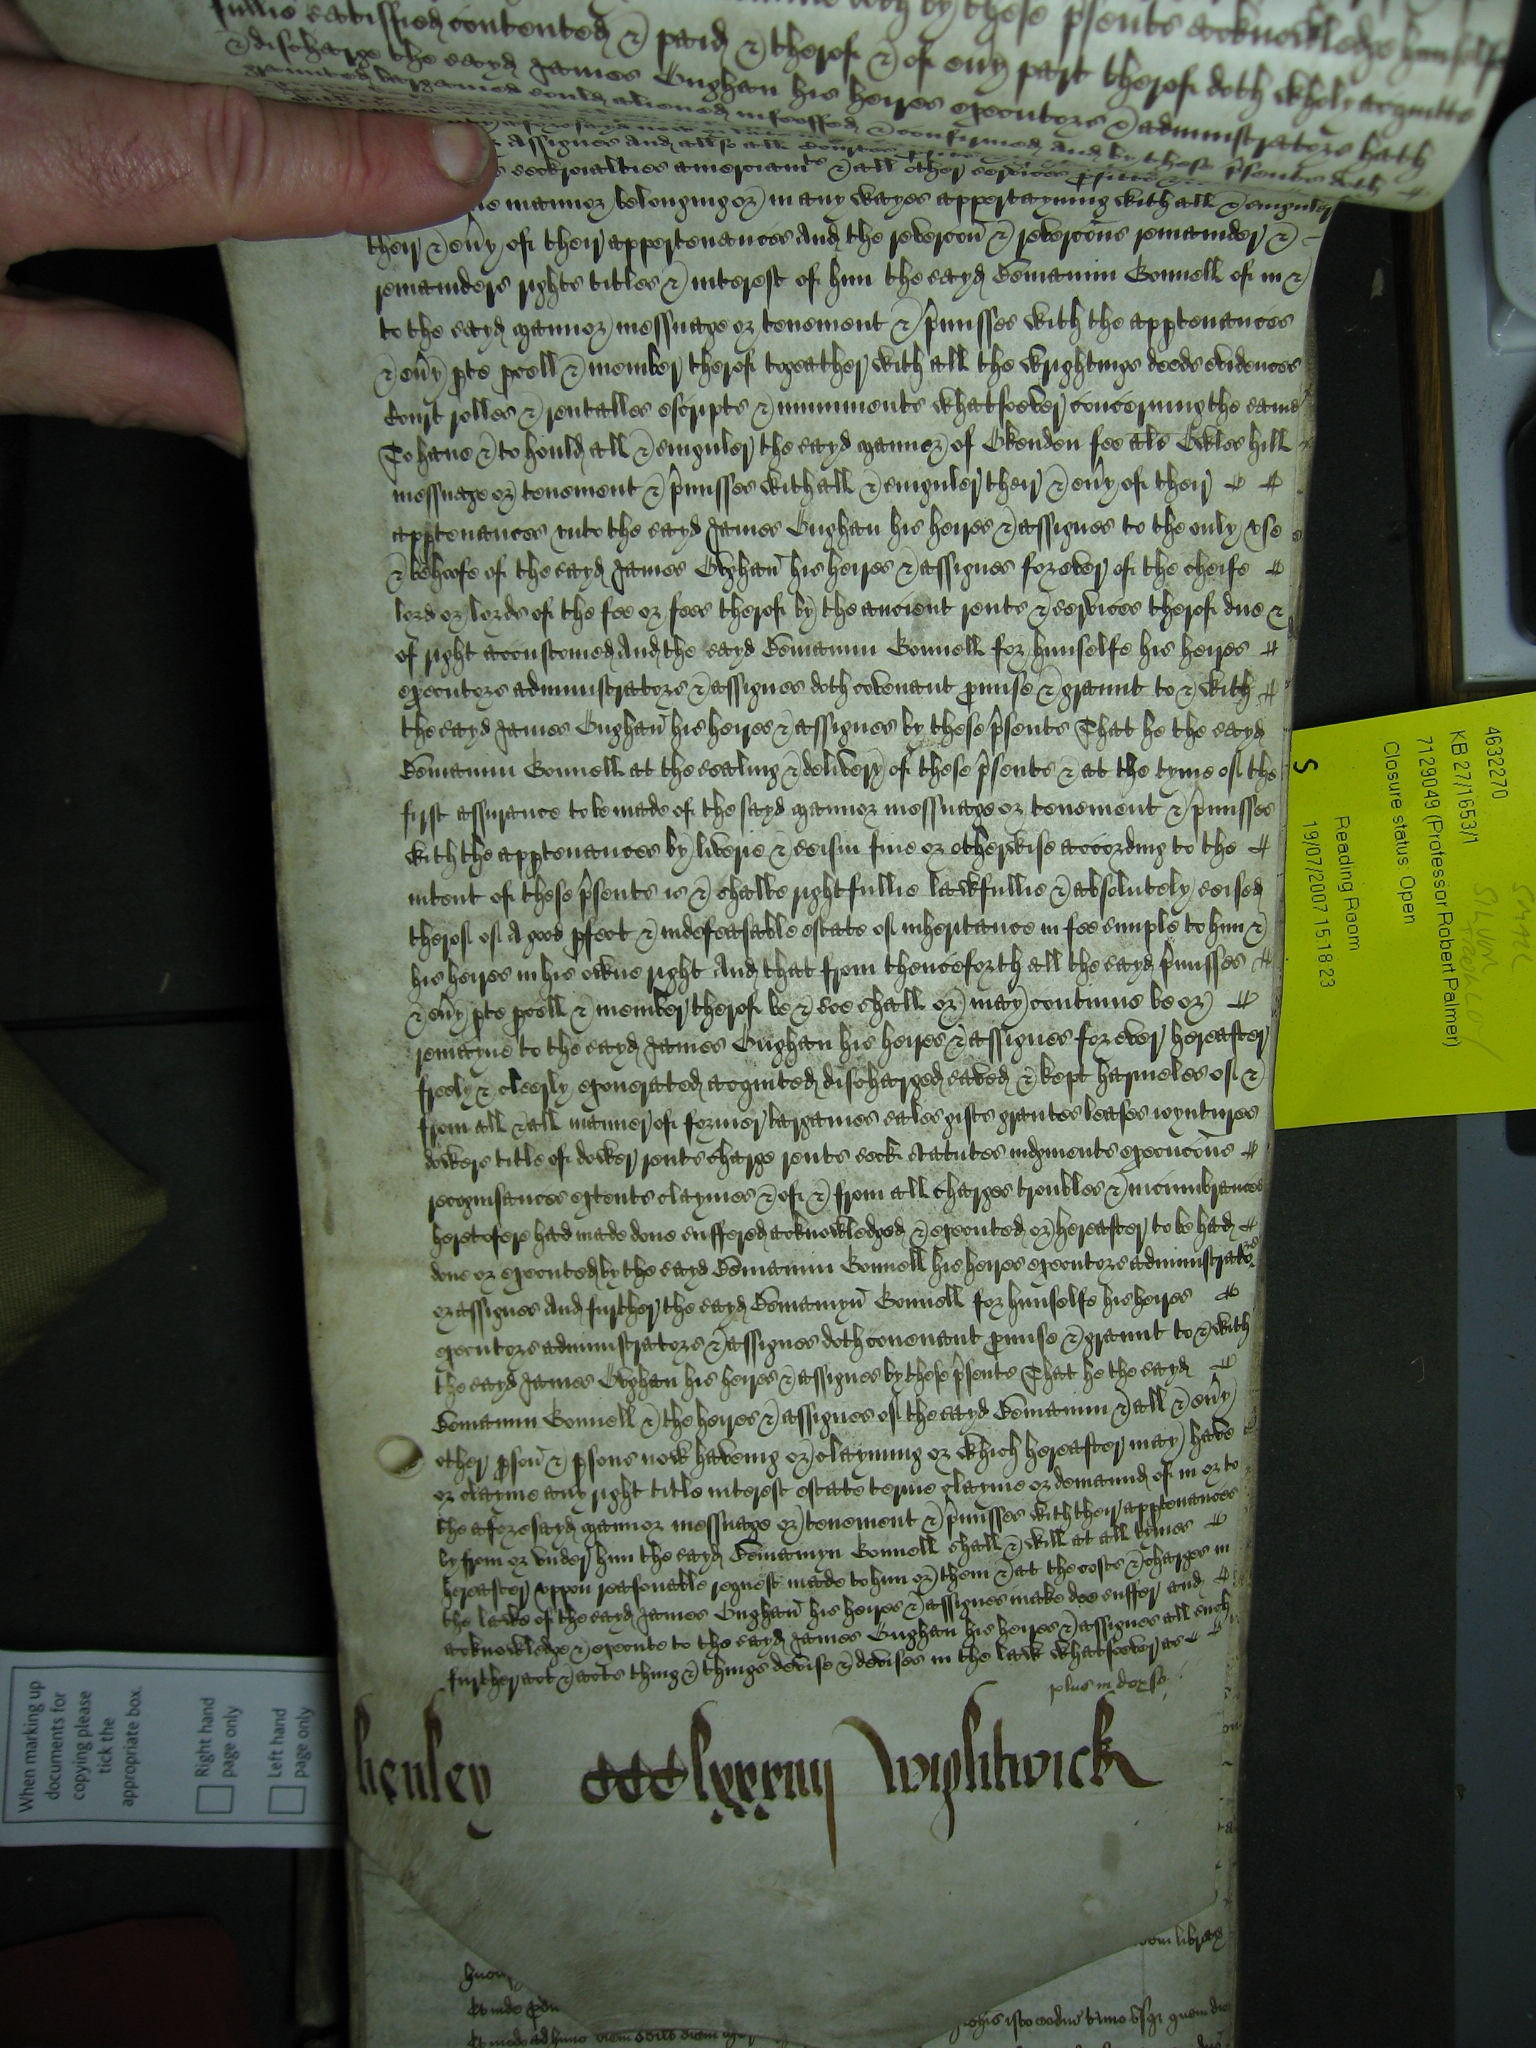 fullie satisfied contented & paid & therof & of eny part therof doth wholy acquitte
& discharge the sayd James Gughan his heires executors & administrators hath
graunted bargained sould aliened infeoffed & confirmed And by these p'sents doth
assignes And allso all
amerciamts & all other services
mannor belonging or in any wayes appertayning with all & singuler
their & eny of their appertenances And the revercon & revercons remainder &
remainders rights titles & interest of him the sayd Beniamin Gonnell of in &
to the sayd mannor messuage or tenement & p'misses with the apptenances
& eny pte pcell & member therof togeather with all the wrightings deeds evidences
Court rolles & rentalles escripts & muniments whatsoever concerning the same
To have & to hould all & singuler the sayd mannor of Okenden fee als Cokles hill
messuage or tenement & p'misses with all & singuler their & eny of their
apptenances unto the sayd James Gughan his heires & assignes to the only use
& behoofe of the sayd James Gughan his heires & assignes forever of the cheife
lord or lords of the fee or fees therof by the ancient rents & services therof due &
of right accustomed And the sayd Beniamin Gonnell for himselfe his heires
executors administrators & assignes doth covenant promise & graunt to & with
the sayd James Gughan his heires & assignes by these p'sents That he the sayd
Beniamin Gonnell at the sealing & delivery of these p'sents & at the tyme of the
first assurance to be made of the sayd mannor messuage or tenement & p'misses
with the apptenances by liverie & seisin fine or otherwise according to the
intent of these p'sents is & shalbe rightfullie lawfullie & absolutely seised
therof of A good pfect & indefeasable estate of inheritance in fee simple to him &
his heires in his owne right And that from thenceforth all the sayd p'misses
& eny pte pcell & member therof be & soe shall or may continue be or
remayne to the sayd James Gughan his heires & assignes for ever hereafter
freely & cleerly exonerated acquited discharged saved & kept harmeles of &
from all & all manner of former bargaines sales gifts grantes leases ioyntures
dowers title of dower rents charge rents seck statutes iudgments execucons
recognisances extents claymes & of & from all charges troubles & incumbrances
heretofore had made done suffered acknowledged & executed or hereafter to be had
done or executed by the sayd Beniamin Gonnell his heires executors administrators
or assignes And further the sayd Beniamyn Gonnell for himselfe his heires
executors administrators & assignes doth covenant promise & graunt to & with
the sayd James Gughan his heires & assignes by these p'sents That he the sayd
Beniamin Gonnell & the heires & assignes of the sayd Beniamin & all & eny
other pson & psons now haveing or clayming or which hereafter may have
or clayme any right title interest estate terme clayme or demaund of in or to
the aforesayd mannor messuage or tenement & p'misses with their apptenances
by from or under him the sayd Beniamyn Gonnell shall & will at all tymes
hereafter uppon reasonable request made to him or them & at the costs & charges in
the lawe of the sayd James Gughan his heires & assignes make doe suffer and
acknowledge & execute to the sayd James Gughan his heires & assignes all such
further act & acts thing & things devise & devises in the law whatsoever as
plus in dorso
henley ccclxxxiiij Wightwick
4632270
KB 27/1653/1
7129049 (Professor Robert Palmer)
Closure status: Open
Reading Room
S 19/07/2007 15:18:23
When marking up
documents for
copying please
tick the
appropriate box.
Right hand
page only
Left hand
page only